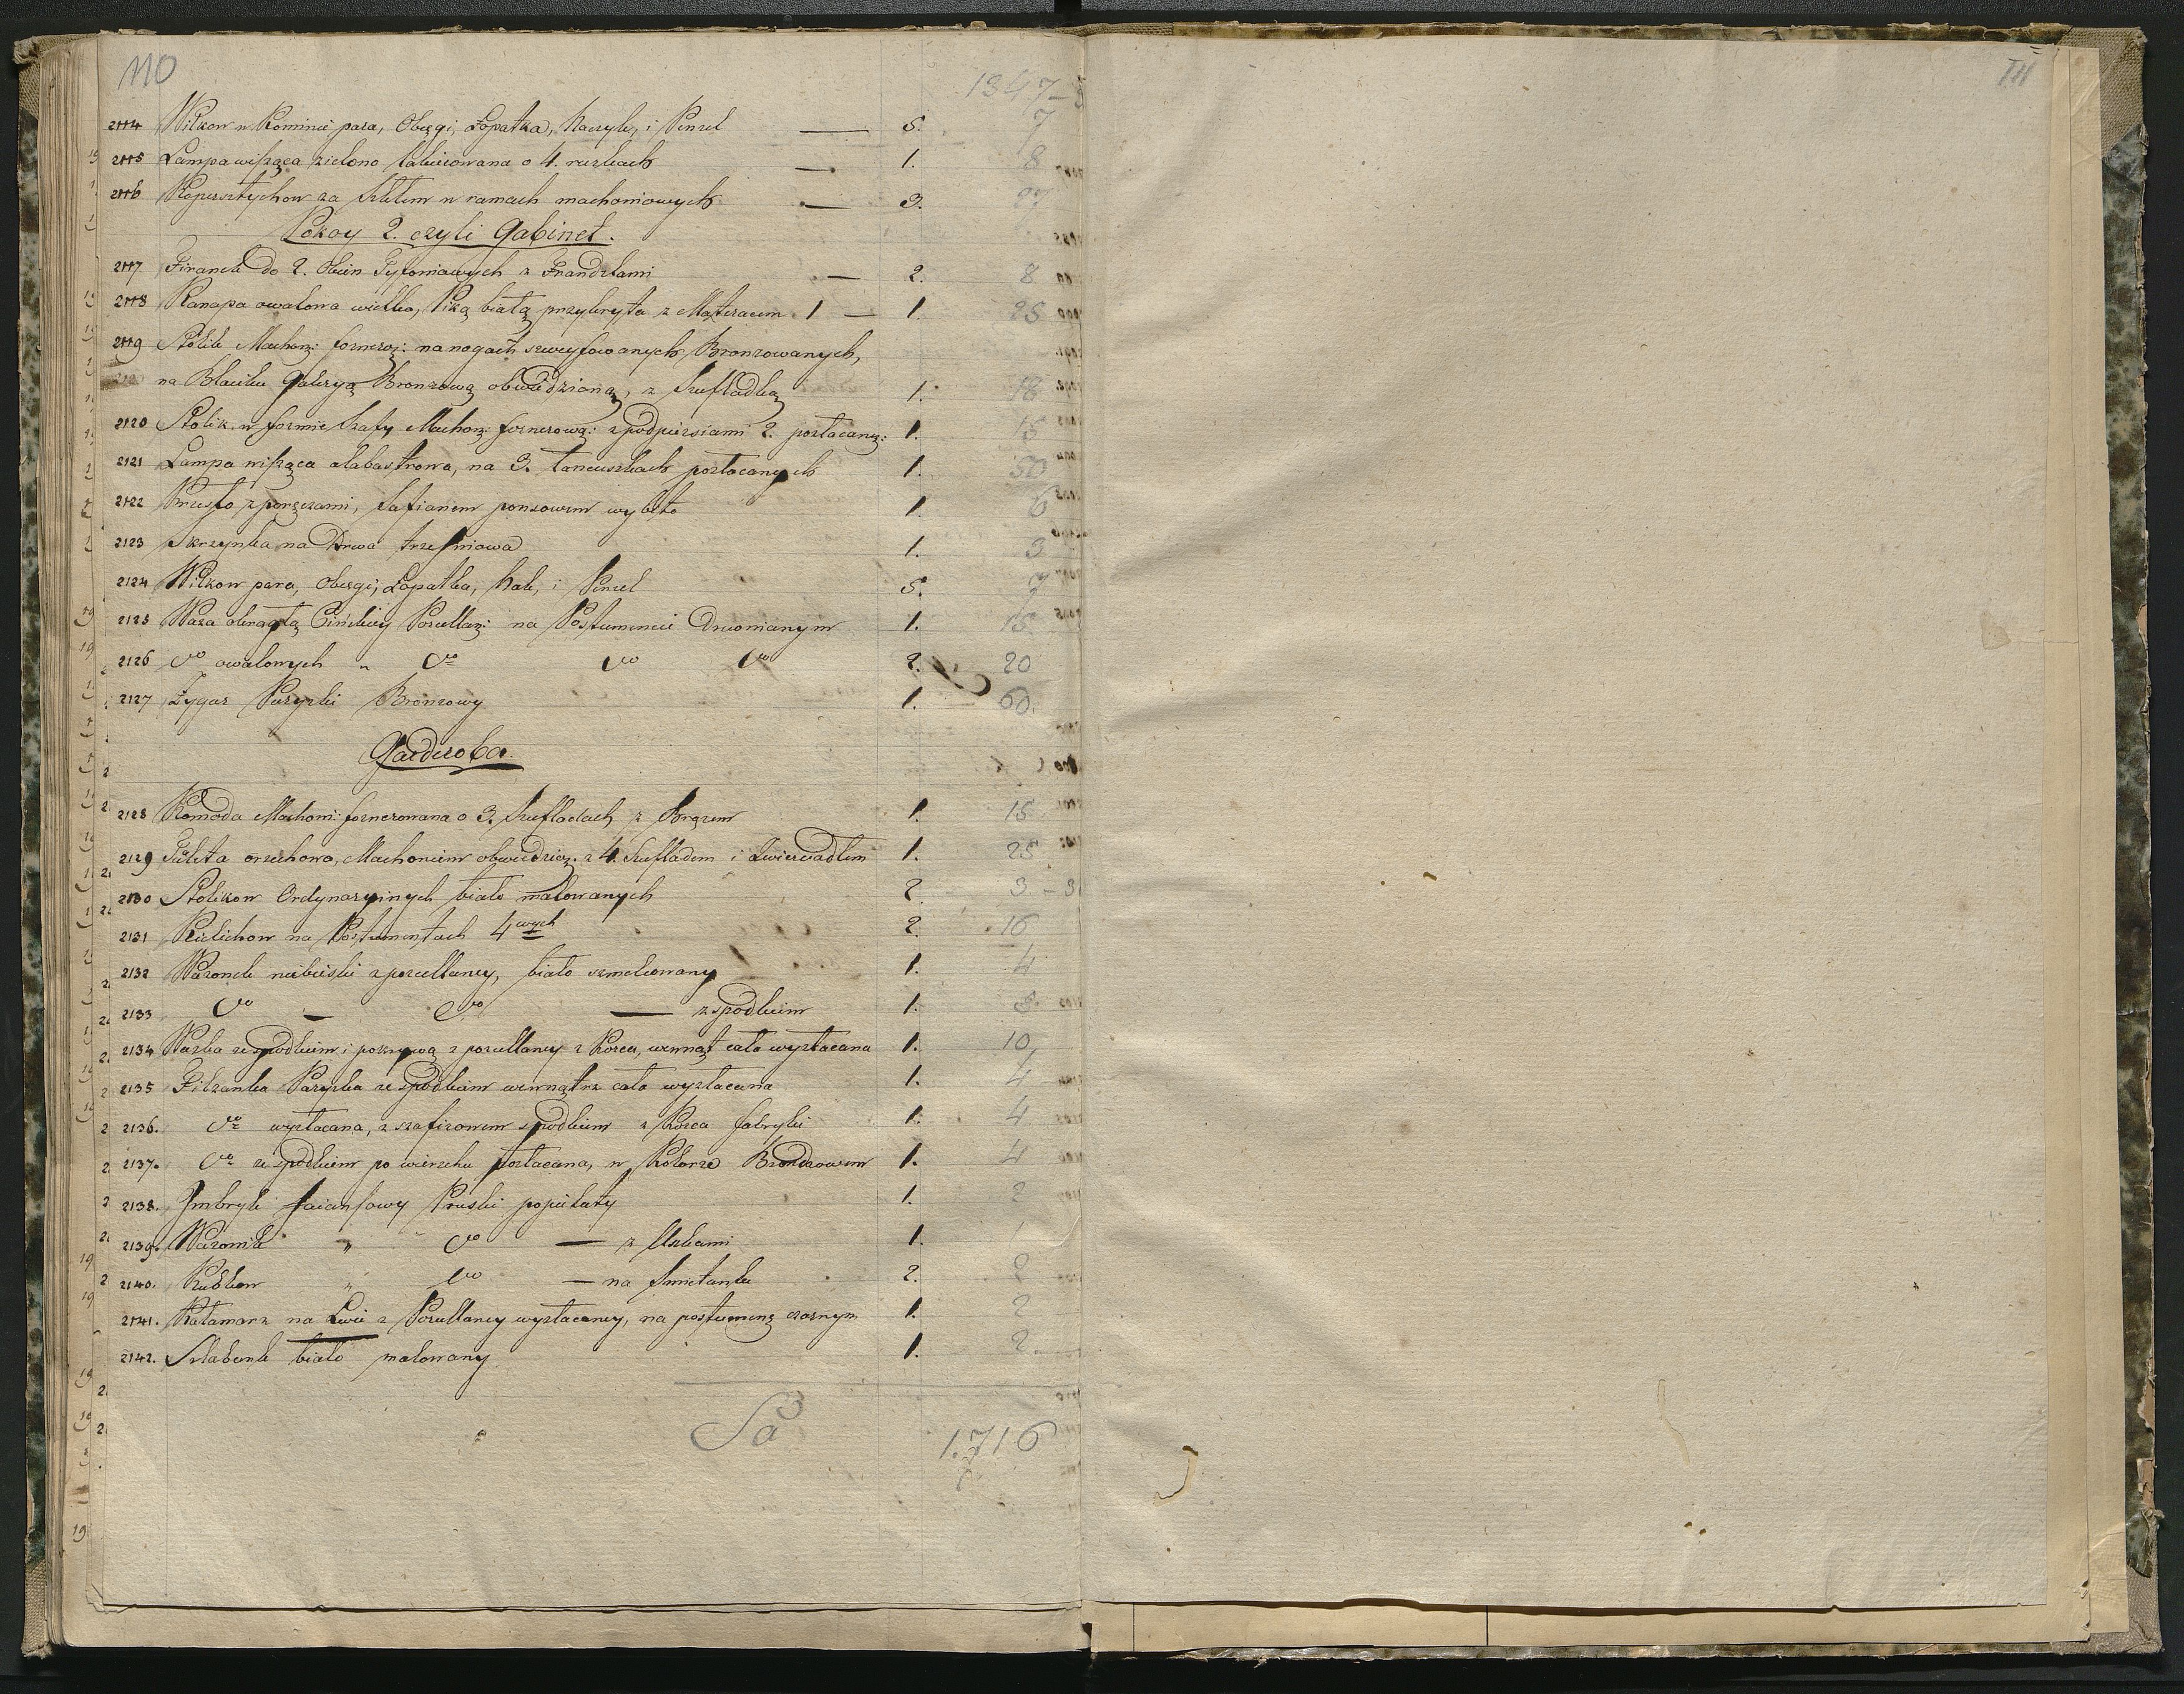 110
1347-3
2114 Wilkow w Kominie para, Obcęgi, Łopatka, haczyk, i Penzel — 5. 7
2115 Lampa wisząca zielono lakierowana o 4. rużkach — 1. 8
2116 Kopersztychow za Szkłem w ramach machoniowych — 3. 27
Pokoy 2. czyli Gabinet.
2117 Firanek do 2. Okien Tyfoniowych z Frandzlami — 2. 8
2118 Kanapa owalowa wielka, Piką białą przykryta z Materacem 1 — 1. 25
2119 Stolik Machon: fornerow: na nogach szweyfowanych, Bronzowanych,
na Blaciku Galeryą Bronzową obwiedzioną, z Szufladką 1. 18
2120 Stolik w formie Szafy Machon: fornerowa: z podpiersiami 2. pozłacany: 1. 15
2121 Lampa wisząca alabastrowa, na 3. łancuszkach pozłacanych 1. 50
2122 Krzesło z poręczami, Safianem ponsowem wybite 1. 6
2123 Skrzynka na Drwa trzesniowa 1. 3
2124 Wilkow para, Obcęgi, Łopatka, hak, i Penzel 5. 7
2125 Waza okrągła Chińskiey Porcellany: na Postumencie Drewnianym 1. 15
2126 dto owalowych „ dto dto dto 2. 20
2127 Zygar Paryzki Bronzowy 1. 60.
Garderoba.
2128 Komoda Machoni: fornerowana o 3. Szufladach z Brązem 1. 15
2129 Toaleta orzechowa, Machoniem obwiedzio: z 4. Szufladem i Zwierciadłem 1. 25
2130 Stolikow Ordynaryinych biało malowanych 2. 3 - 3
2131 Kielichow na Postumentach 4wych 2. 16
2132 Wazonek niebieski z porcellany, biało szmelcowany 1. 4
2133 dto — dto — z spodkiem 1. 5
2134 Wazka ze spodkiem i pokrywą z porcellany z Korca, wewnąt cała wyzłacana 1. 10
2135 Filzanka Paryzka ze spodkiem wewnątrz cała wyzłacana 1. 4
2136. dto wyzłacana, z szafirowem spodkiem z Korca fabryki 1. 4
2137. dto ze spodkiem po wierzchu pozłacana, w Kolorze Brondzowem 1. 4
2138. Jmbryk faiansowy Pruski popielaty 1. 2
2139. Wazonik „ dto — z Uszkami 1. 1
2140. Kubkow „ dto — na Smietankę 2. 2
2141. Kałamarz na Lwie z Porcellany wyzłacaney, na postumenę czarnym 1. 2
2142. Szlabank biało malowany 1. 2
Sa 1.716